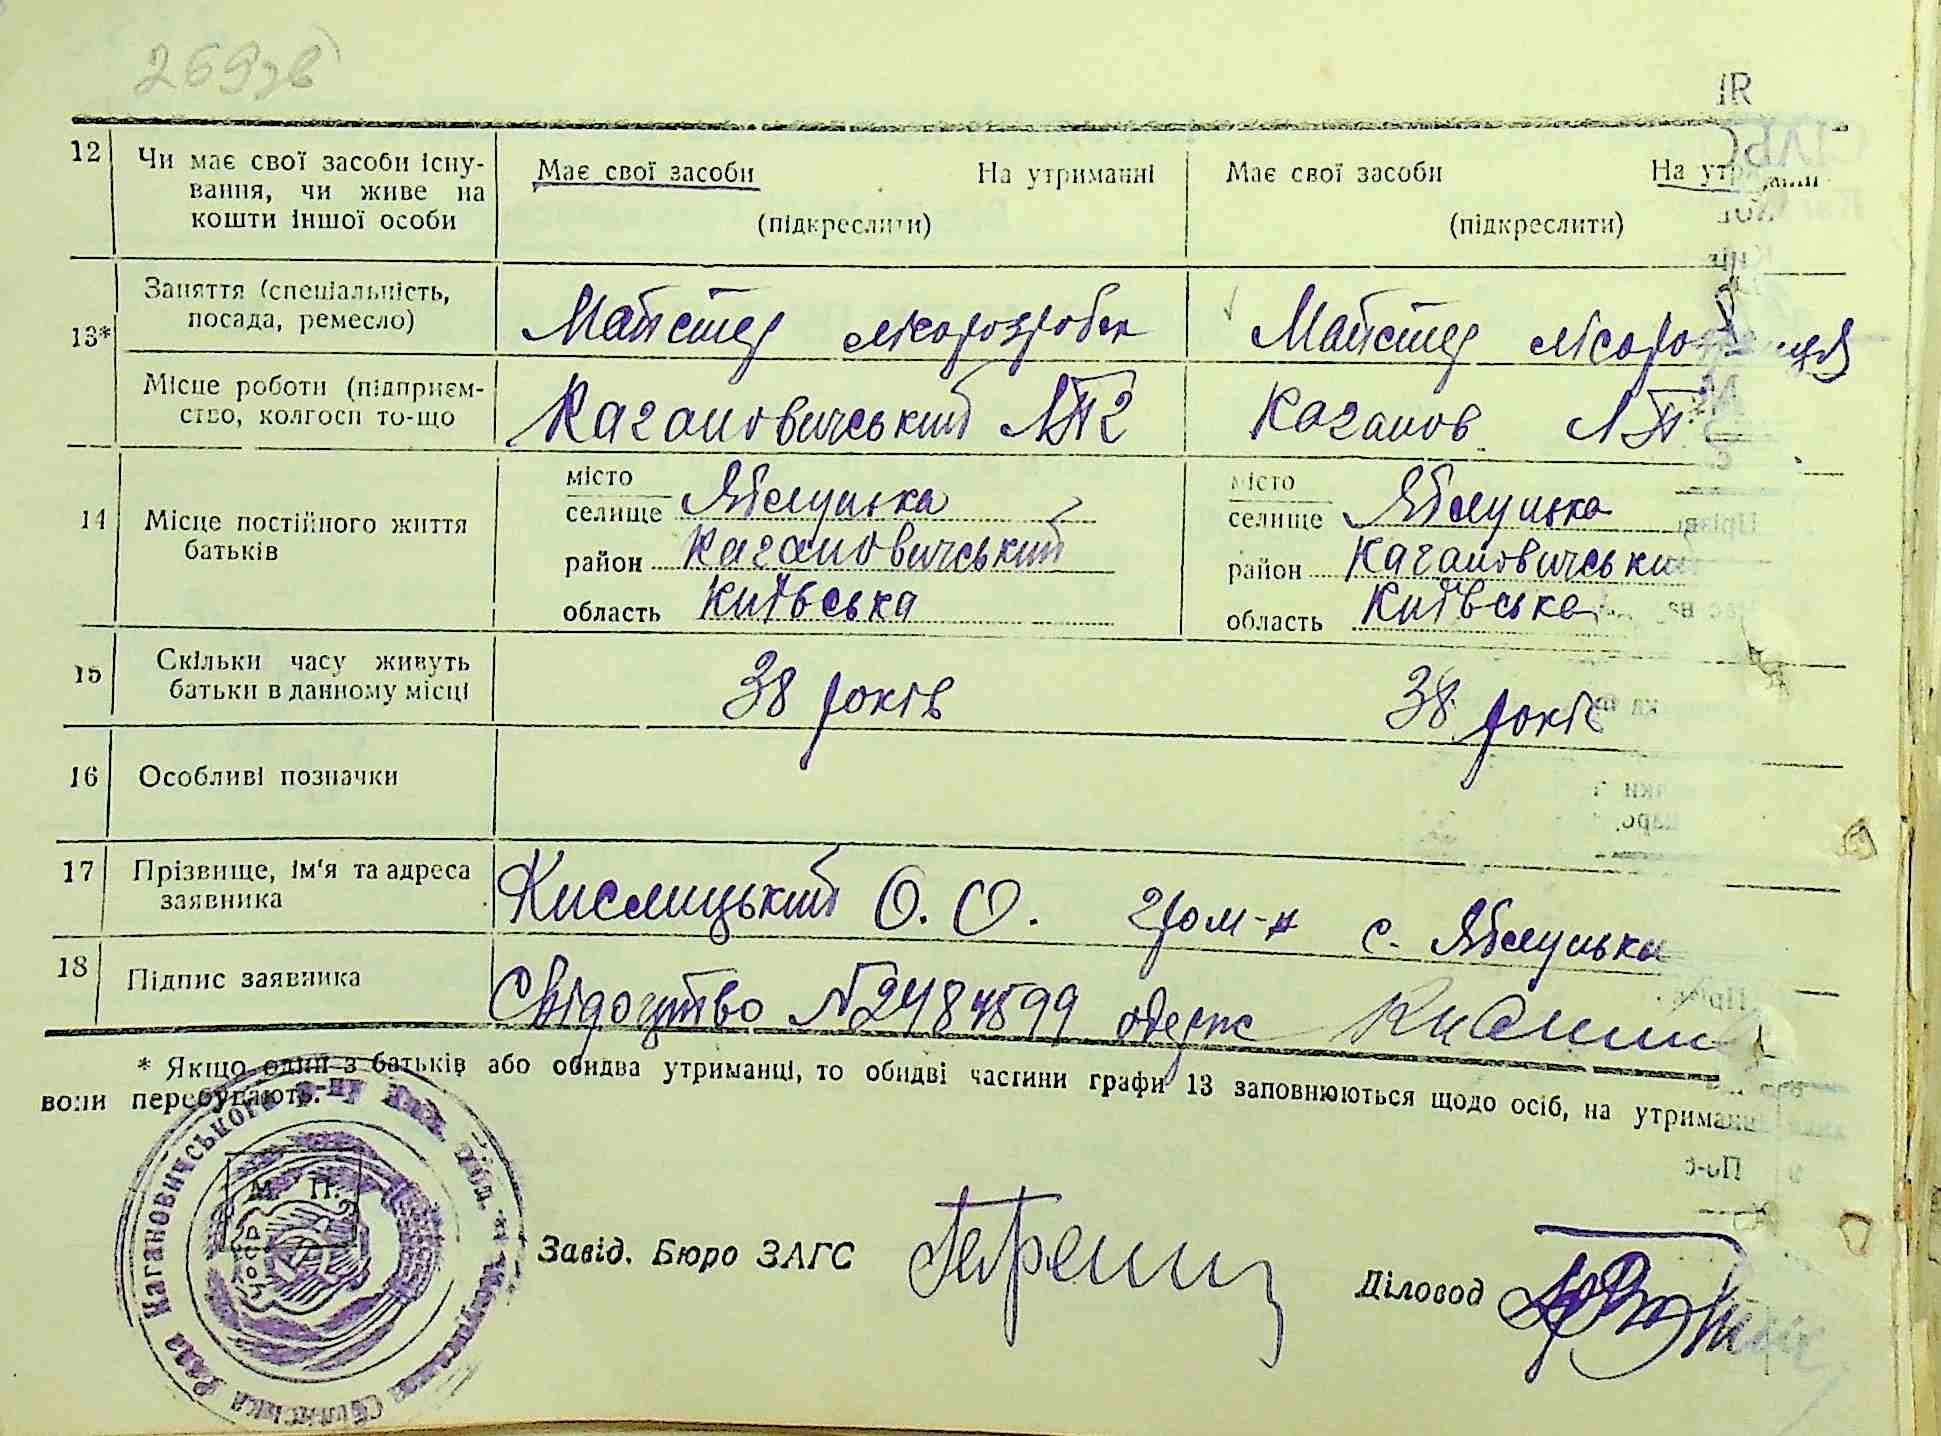 269зв
12 Чи має свої засоби існу-
вання, чи живе на
кошти іншої особи
Має свої засоби На утриманні
(підкреслити)
Має свої засоби
(підкреслити)
13* Заняття (спеціальність,
посада, ремесло)
Майстер лісорозробок
Майстер
Місце роботи (підприєм-
ство, колгосп то-що
Кагановичський ЛТГ
Каганов
14 Місце постійного життя
батьків
місто
селище Яблунька
район Кагановичський
область Київська
місто
селище Яблунька
район Кагановичський
область Київська
15 Скільки часу живуть
батьки в данному місці
38 років
38 років
16 Особливі позначки
17 Прізвище, ім'я та адреса
заявника
Кислицький О. О. гром-н с. Яблунька
18 Підпис заявника
Свідоцтво № одерж
* Якщо один з батьків або обидва утриманці, то обидві частини графи 13 заповнюються щодо осіб, на
вони перебувають.
Кагановичського р-ну
Сільська Рада
УСРР
М. П.
Завід. Бюро ЗАГС
Діловод